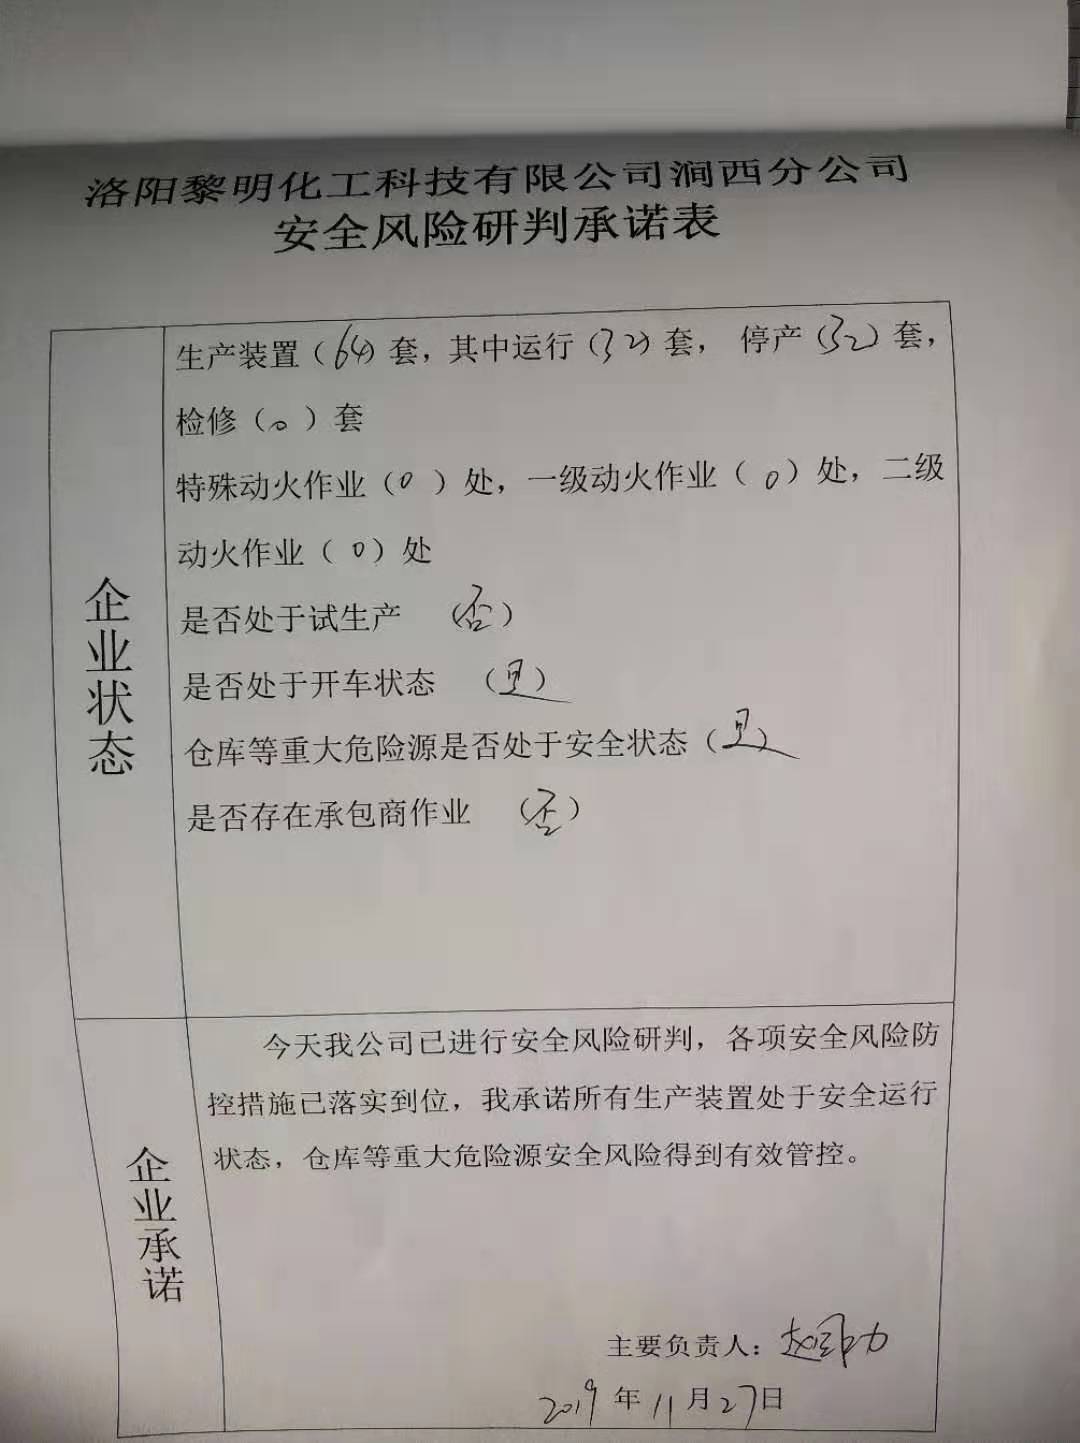 洛阳黎明化工科技有限公司涧西分公司
安全风险研判承诺表
企业状态
生产装置（64）套，其中运行（32）套， 停产（32）套，
检修（0）套
特殊动火作业（0）处，一级动火作业（0）处，二级
动火作业（0）处
是否处于试生产 （否）
是否处于开车状态 （是）
仓库等重大危险源是否处于安全状态（是）
是否存在承包商作业 （否）
企业承诺
今天我公司已进行安全风险研判，各项安全风险防
控措施已落实到位，我承诺所有生产装置处于安全运行
状态，仓库等重大危险源安全风险得到有效管控。
主要负责人：
2019年11月27日